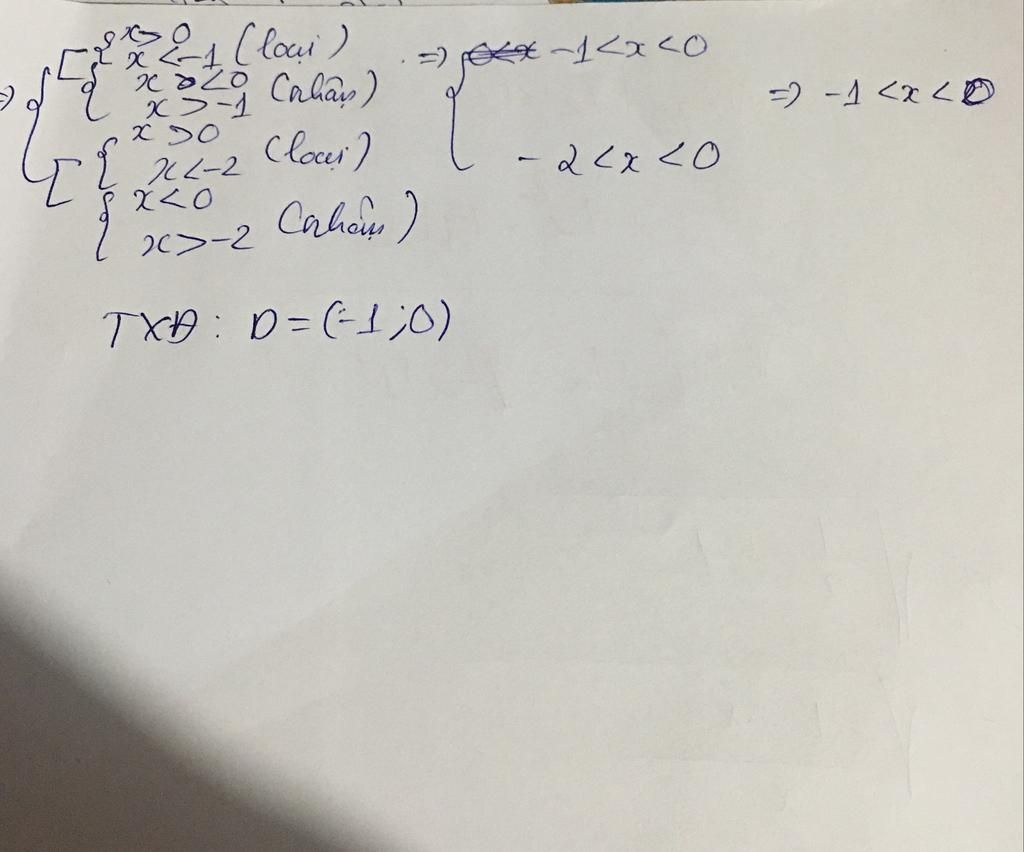 => { [ { x > 0
x < -1 (loại) => { -1 < x < 0
{ x < 0
x > -1 (nhận) => -1 < x < 0
[ { x > 0
x < -2 (loại) -2 < x < 0
{ x < 0
x > -2 (nhận)
TXĐ: D = (-1; 0)